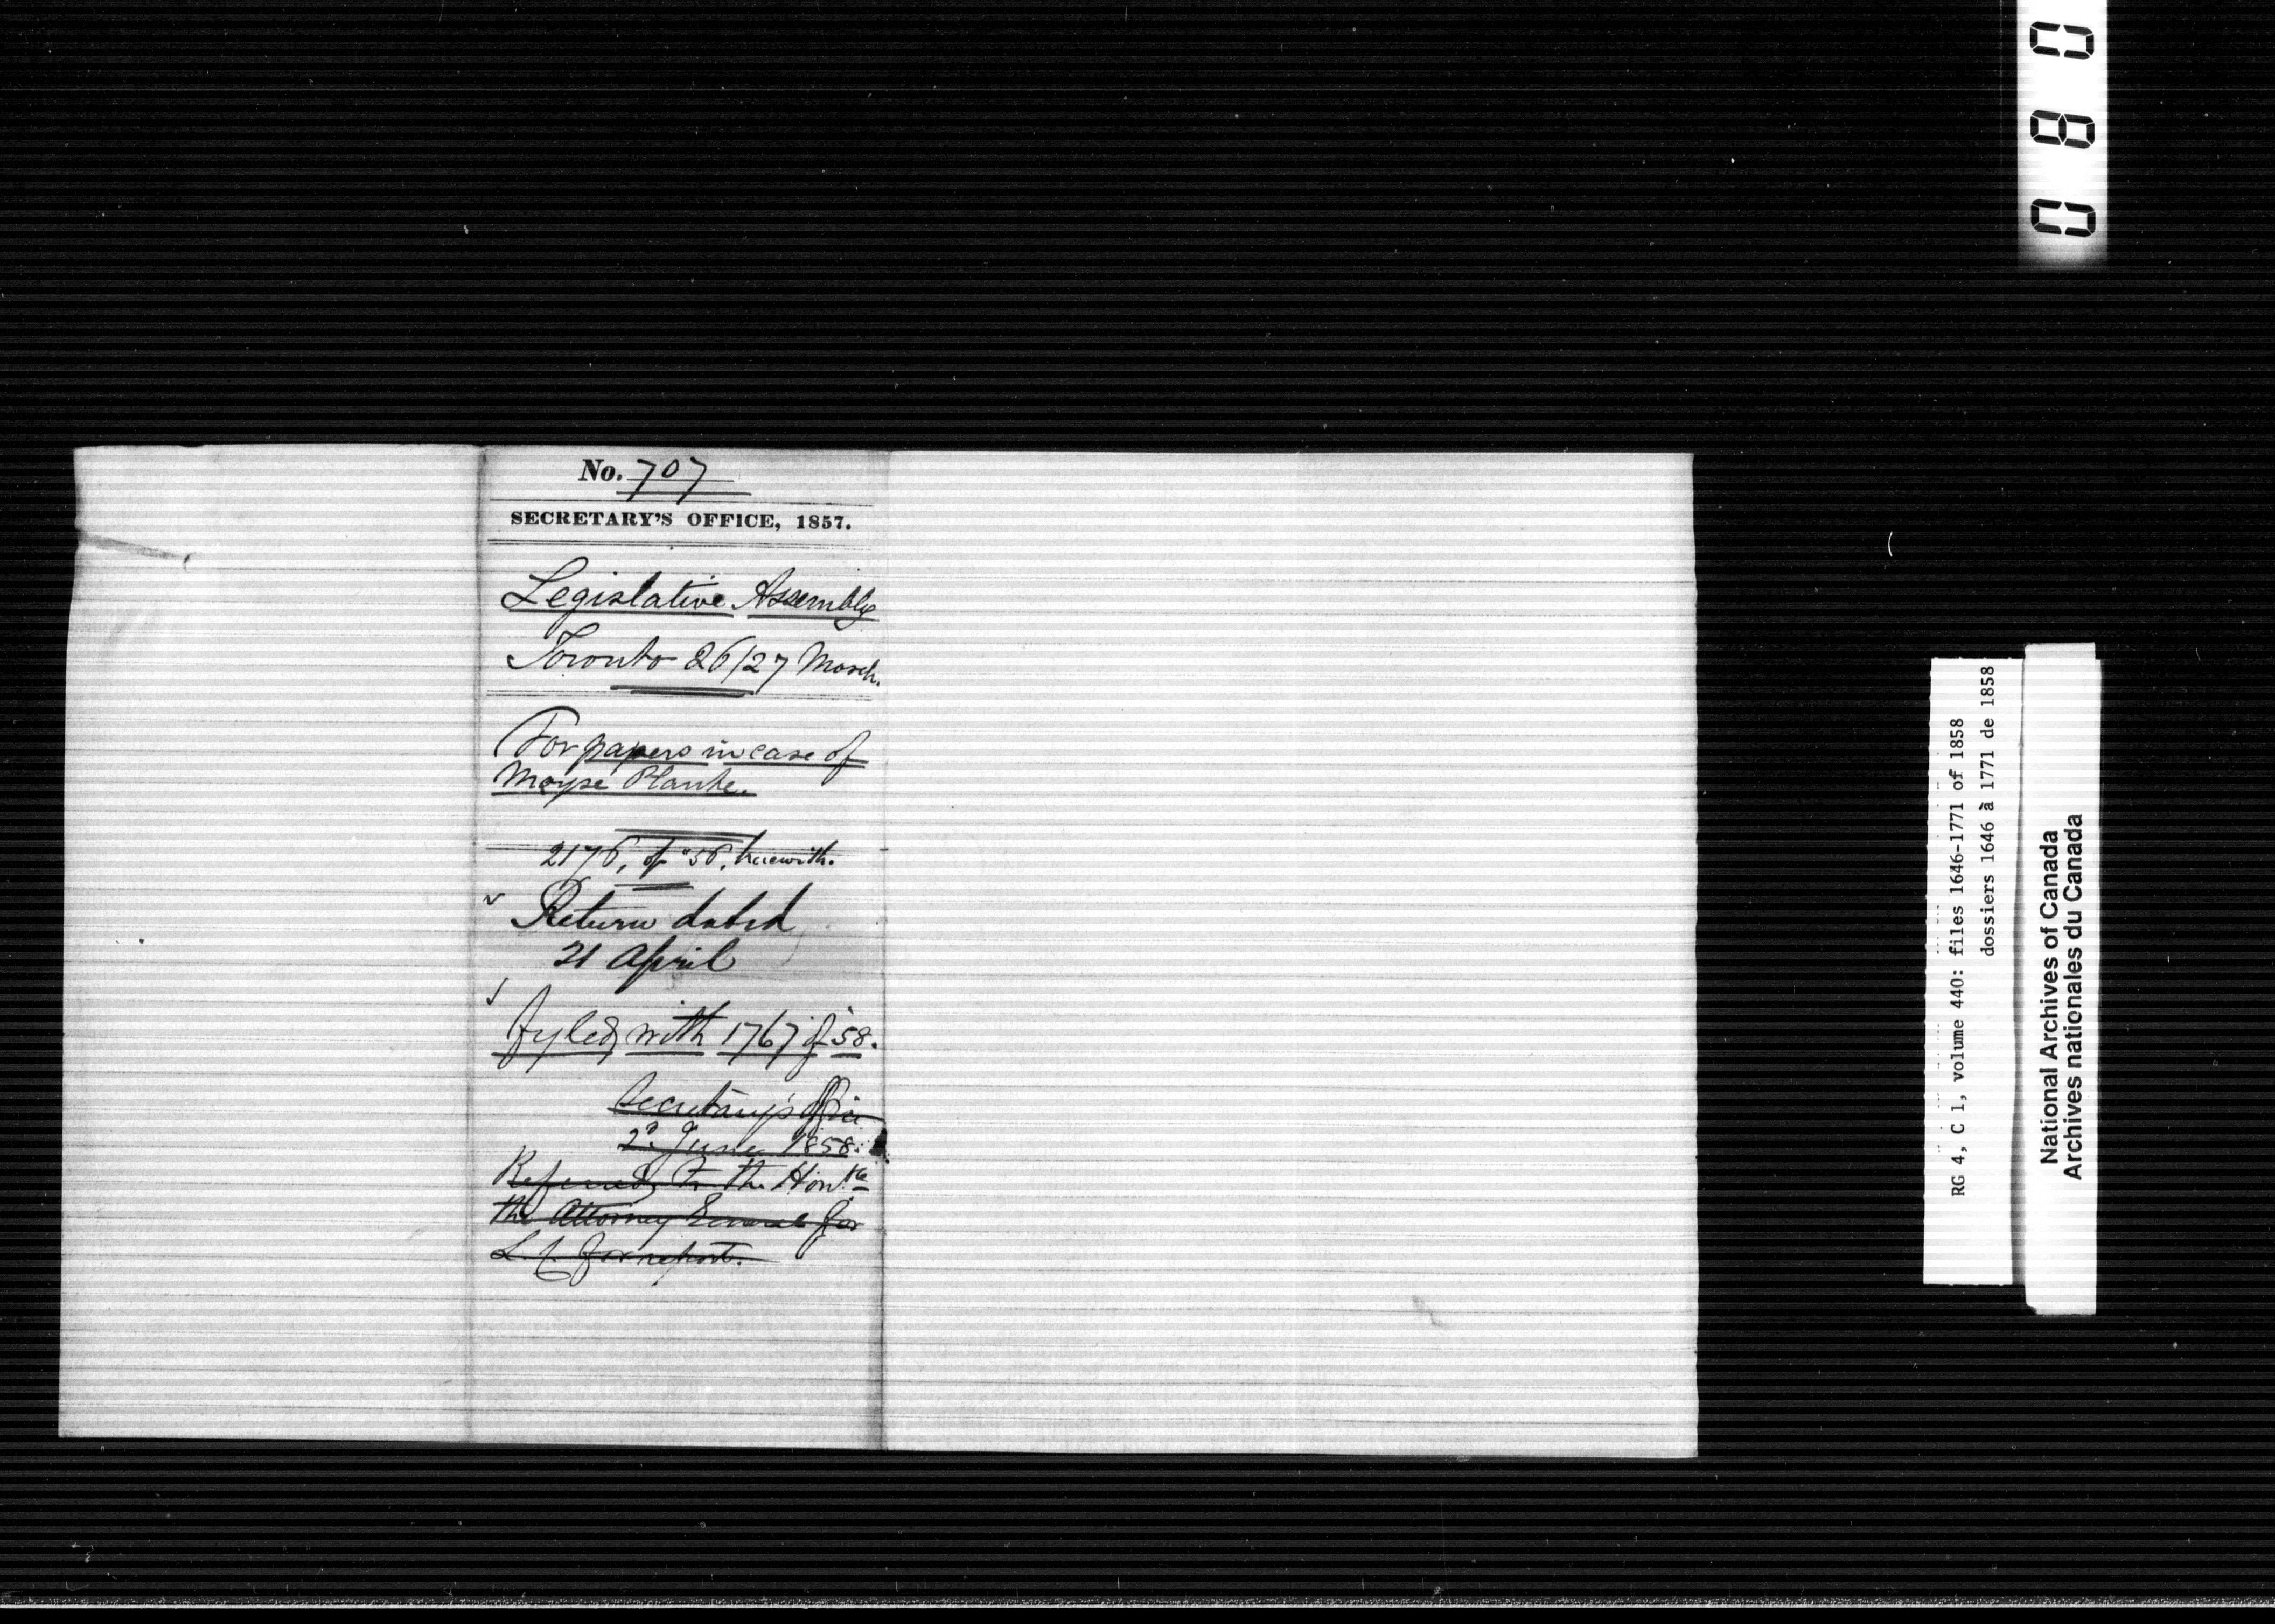 No. 707
SECRETARY'S OFFICE, 1857.
Legislative Assembly
Toronto 26/27 March.
For papers in case of
Moyse Plante.
2176, of "56, herewith.
Return dated
21 April
fyled, with 1767 of '58.
Secretary's Office
2d. June 1858.
Referred, to the Honble
the Attorney General for
L. C. for report.
080
RG 4, C 1, volume 440: files 1646-1771 of 1858
dossiers 1646 à 1771 de 1858
National Archives of Canada
Archives nationales du Canada